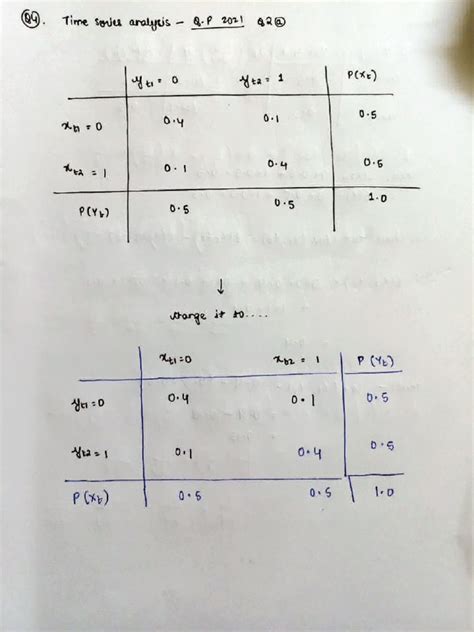 Q4. Time series analysis - Q.P 2021 Q2(a)
yt1 = 0 yt2 = 1 P(Xt)
xt1 = 0 0.4 0.1 0.5
xt2 = 1 0.1 0.4 0.5
P(Yt) 0.5 0.5 1.0
↓
change it to....
xt1=0 xt2 = 1 P(Yt)
yt1=0 0.4 0.1 0.5
yt2=1 0.1 0.4 0.5
P(Xt) 0.5 0.5 1.0